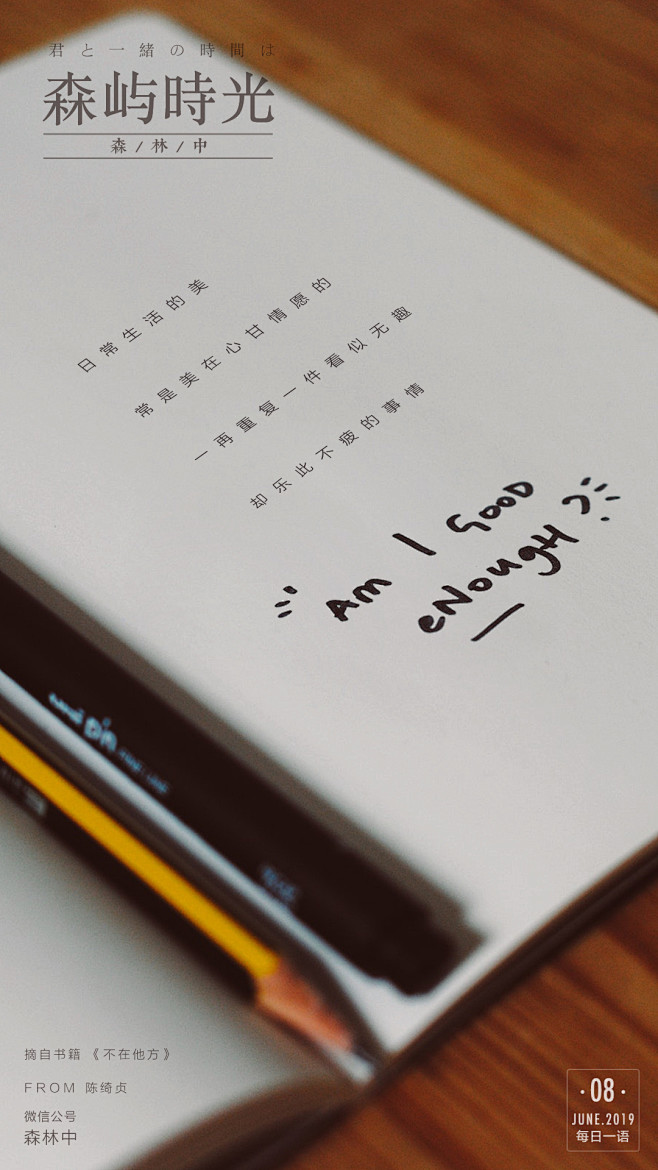 君と一緒の時間は
森屿時光
森/林/中
日常生活的美
常是美在心甘情愿的
一再重复一件看似无趣
却乐此不疲的事情
AM I GOOD
eNougH
摘自书籍《不在他方》
FROM 陈绮贞
微信公号
森林中
·08·
JUNE.2019
每日一语